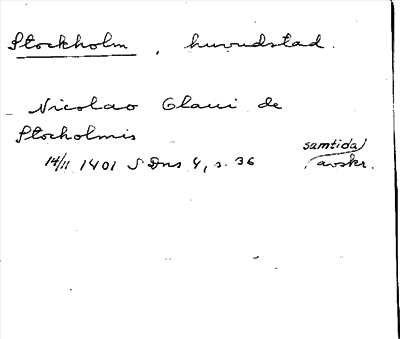 Stockholm, huvudstad.
Nicolao Olaui de
Stocholmis
samtida
14/11 1401 SDns 4, s. 36 avskr.